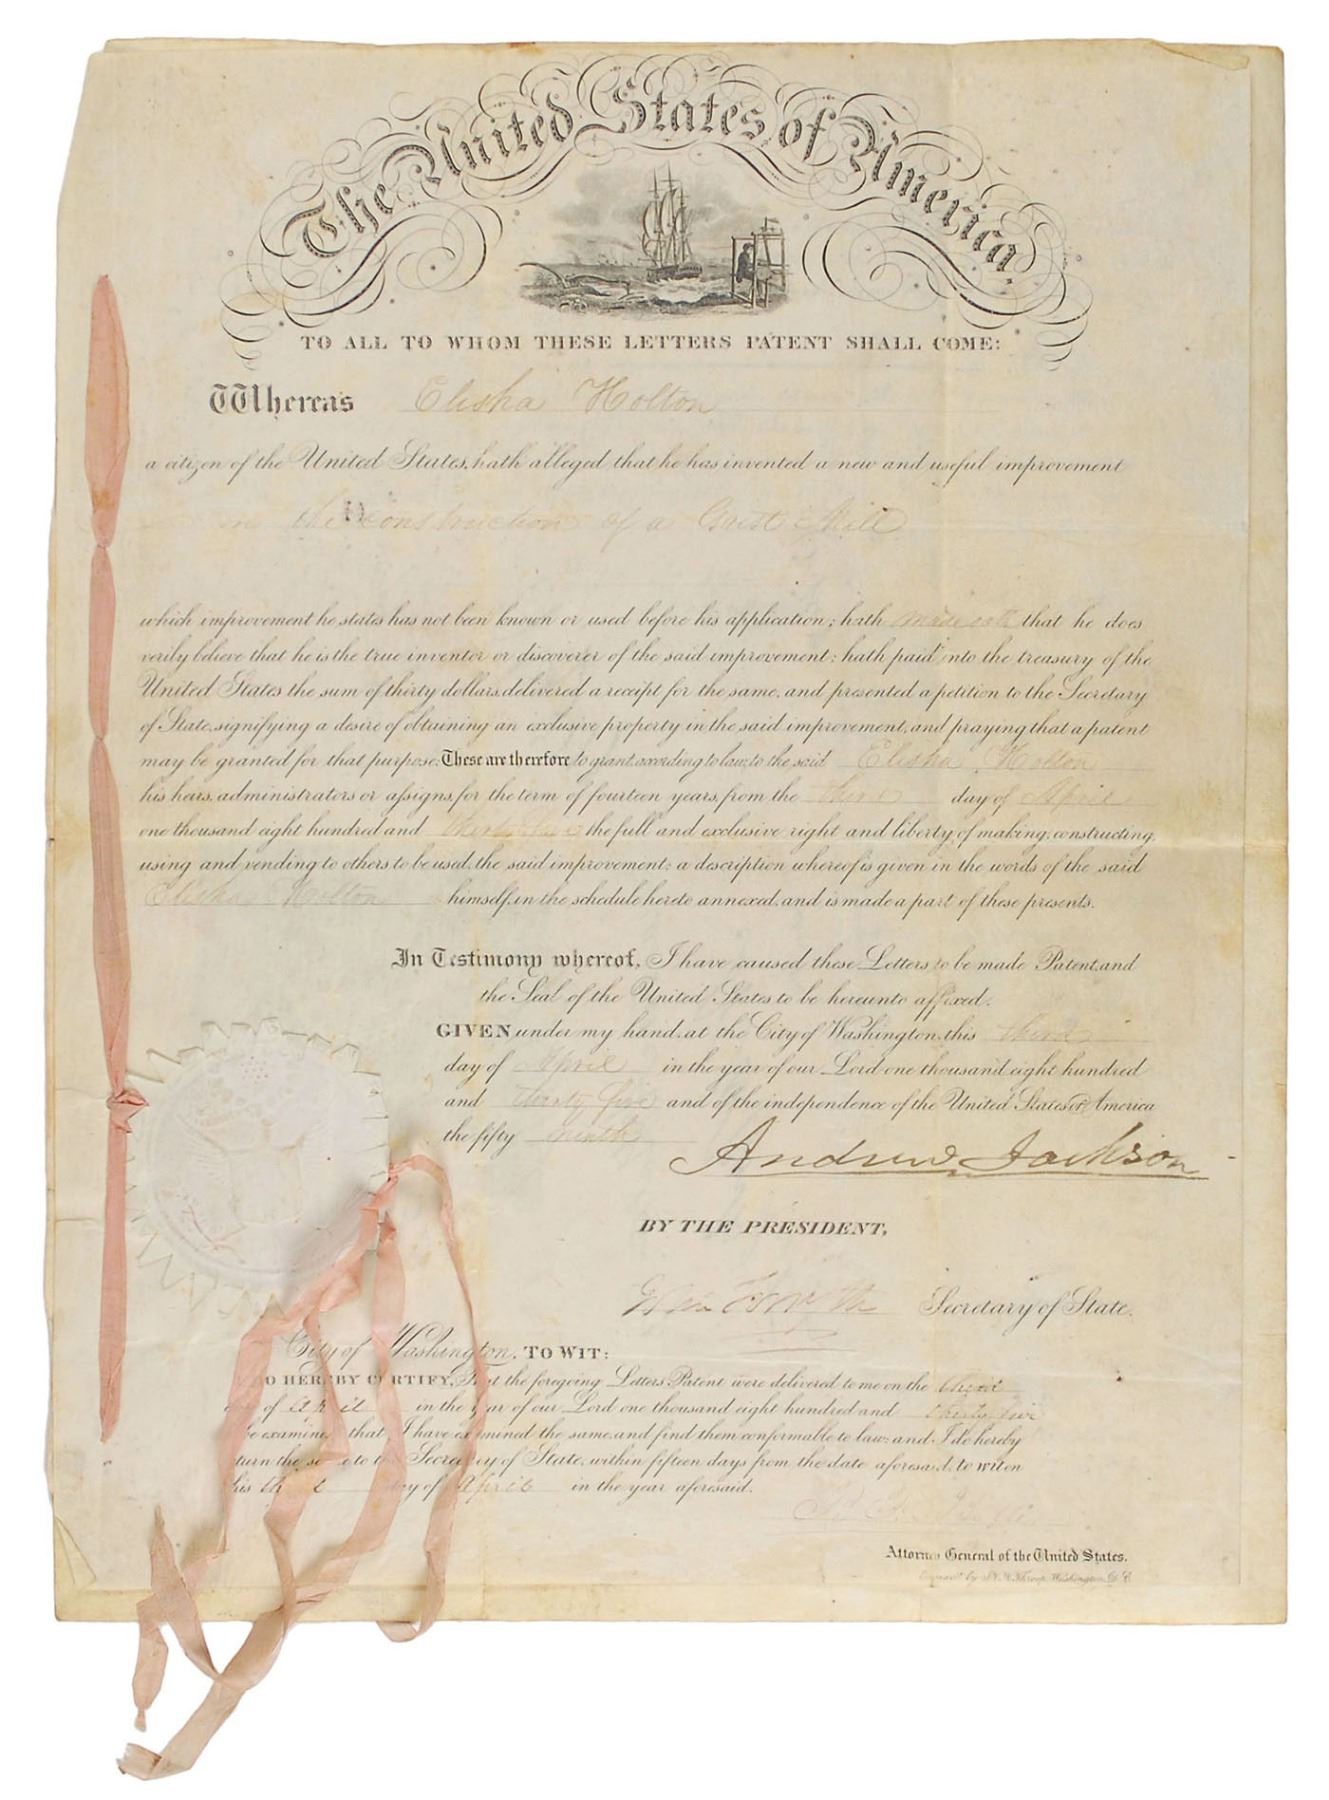 The United States of America,
TO ALL TO WHOM THESE LETTERS PATENT SHALL COME:
Whereas Elisha Holton
a citizen of the United States, hath alleged that he has invented a new and useful improvement
in the construction of a Grist Mill
which improvement he states has not been known or used before his application; hath made oath that he does
verily believe that he is the true inventor or discoverer of the said improvement; hath paid into the treasury of the
United States the sum of thirty dollars, delivered a receipt for the same, and presented a petition to the Secretary
of State, signifying a desire of obtaining an exclusive property in the said improvement, and praying that a patent
may be granted for that purpose: These are therefore to grant, according to law, to the said Elisha Holton
his heirs, administrators or assigns, for the term of fourteen years, from the third day of April
one thousand eight hundred and thirty five the full and exclusive right and liberty of making, constructing,
using and vending to others to be used, the said improvement; a description whereof is given in the words of the said
Elisha Holton himself, in the schedule hereto annexed, and is made a part of these presents.
In Testimony whereof, I have caused these Letters to be made Patent, and
the Seal of the United States to be hereunto affixed.
GIVEN under my hand, at the City of Washington, this third
day of April in the year of our Lord one thousand eight hundred
and thirty five and of the independence of the United States of America
the fifty ninth
Andrew Jackson
BY THE PRESIDENT,
John Forsyth Secretary of State.
City of Washington, TO WIT:
DO HEREBY CERTIFY, That the foregoing Letters Patent were delivered to me on the third
day of April in the year of our Lord one thousand eight hundred and thirty five
to be examined; that I have examined the same, and find them conformable to law; and I do hereby
return the same to the Secretary of State, within fifteen days from the date aforesaid, to wit: on
this third day of April in the year aforesaid.
Attorney General of the United States.
Throop, Washington, D.C.